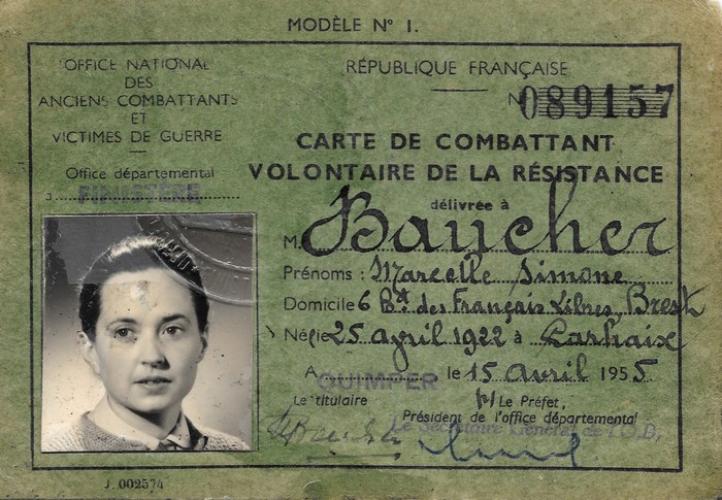 MODÈLE N° 1.
OFFICE NATIONAL
DES
ANCIENS COMBATTANTS
ET
VICTIMES DE GUERRE
Office départemental
3 FINISTÈRE
RÉPUBLIQUE FRANÇAISE
N° 089157
CARTE DE COMBATTANT
VOLONTAIRE DE LA RÉSISTANCE
délivrée à
M. Baucher
Prénoms : Marcelle Simone
Domicile 6 Bd des Français Libres, Brest
Né(e) 25 avril 1922 à Carhaix
A QUIMPER le 15 avril 1955
Le titulaire
Le Préfet,
Président de l'office départemental
Le Secrétaire Général de l'O.D,
J. 002574